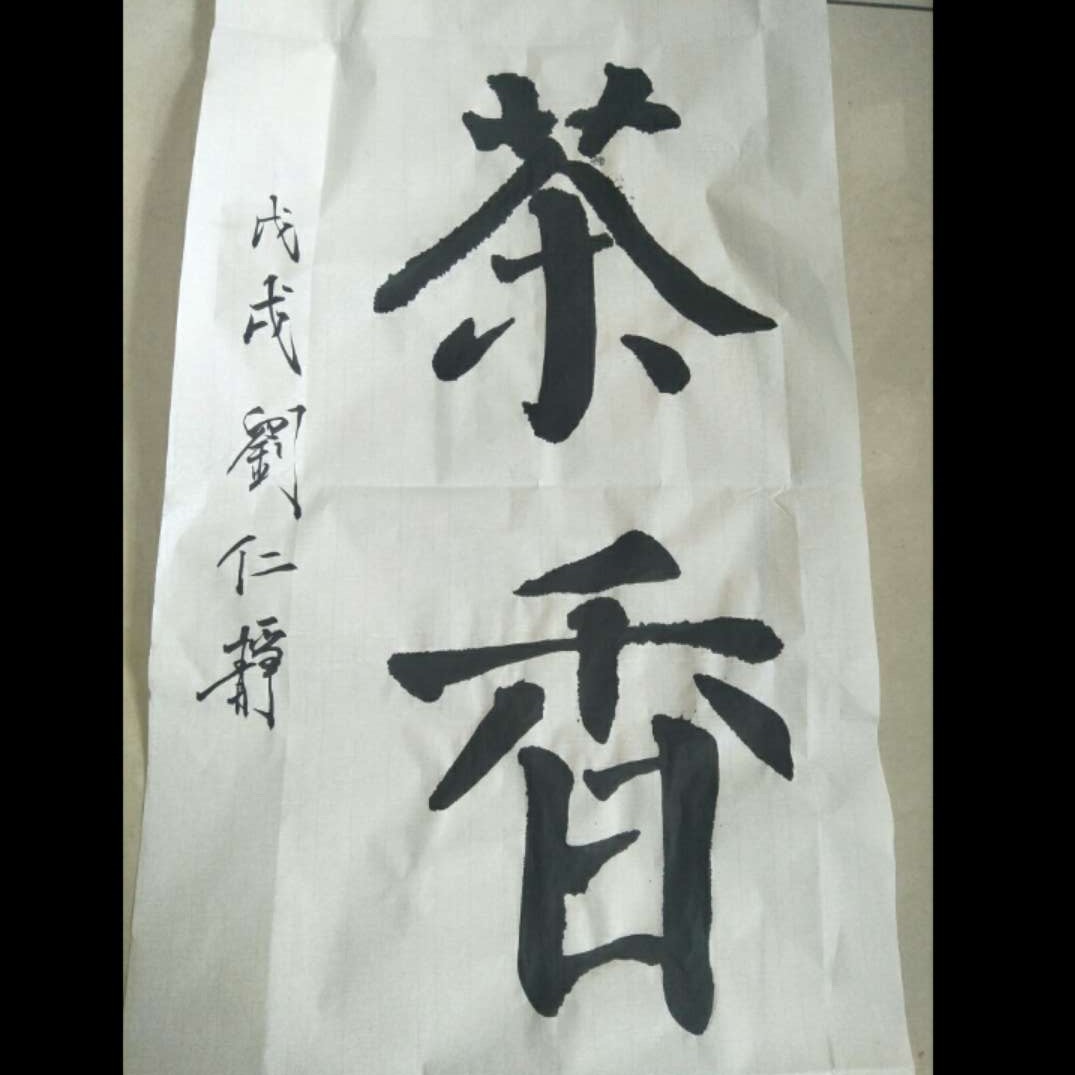 茶香
戊戌劉仁靜